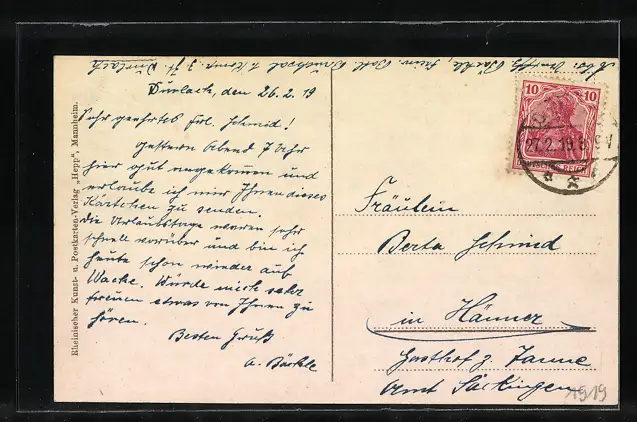 Durlach, den 26.2.19
Sehr geehrtes Frl. Schmid!
Gestern Abend 7 Uhr
hier gut angekommen und
erlaube ich mir Ihnen dieses
Kärtchen zu senden.
Die Urlaubstage waren sehr
schnell vorüber und bin ich
heute schon wieder auf
Wache. Würde mich sehr
freuen etwas von Ihnen zu
hören.
Besten Gruß
A. Bächle
Rheinischer Kunst- u. Postkarten-Verlag „Hepp", Mannheim.
10 10
DEUTSCHES REICH
27.2.19.
Fräulein
Berta Schmid
in Hänner
Gasthof z. Tanne
Amt Säckingen
1919